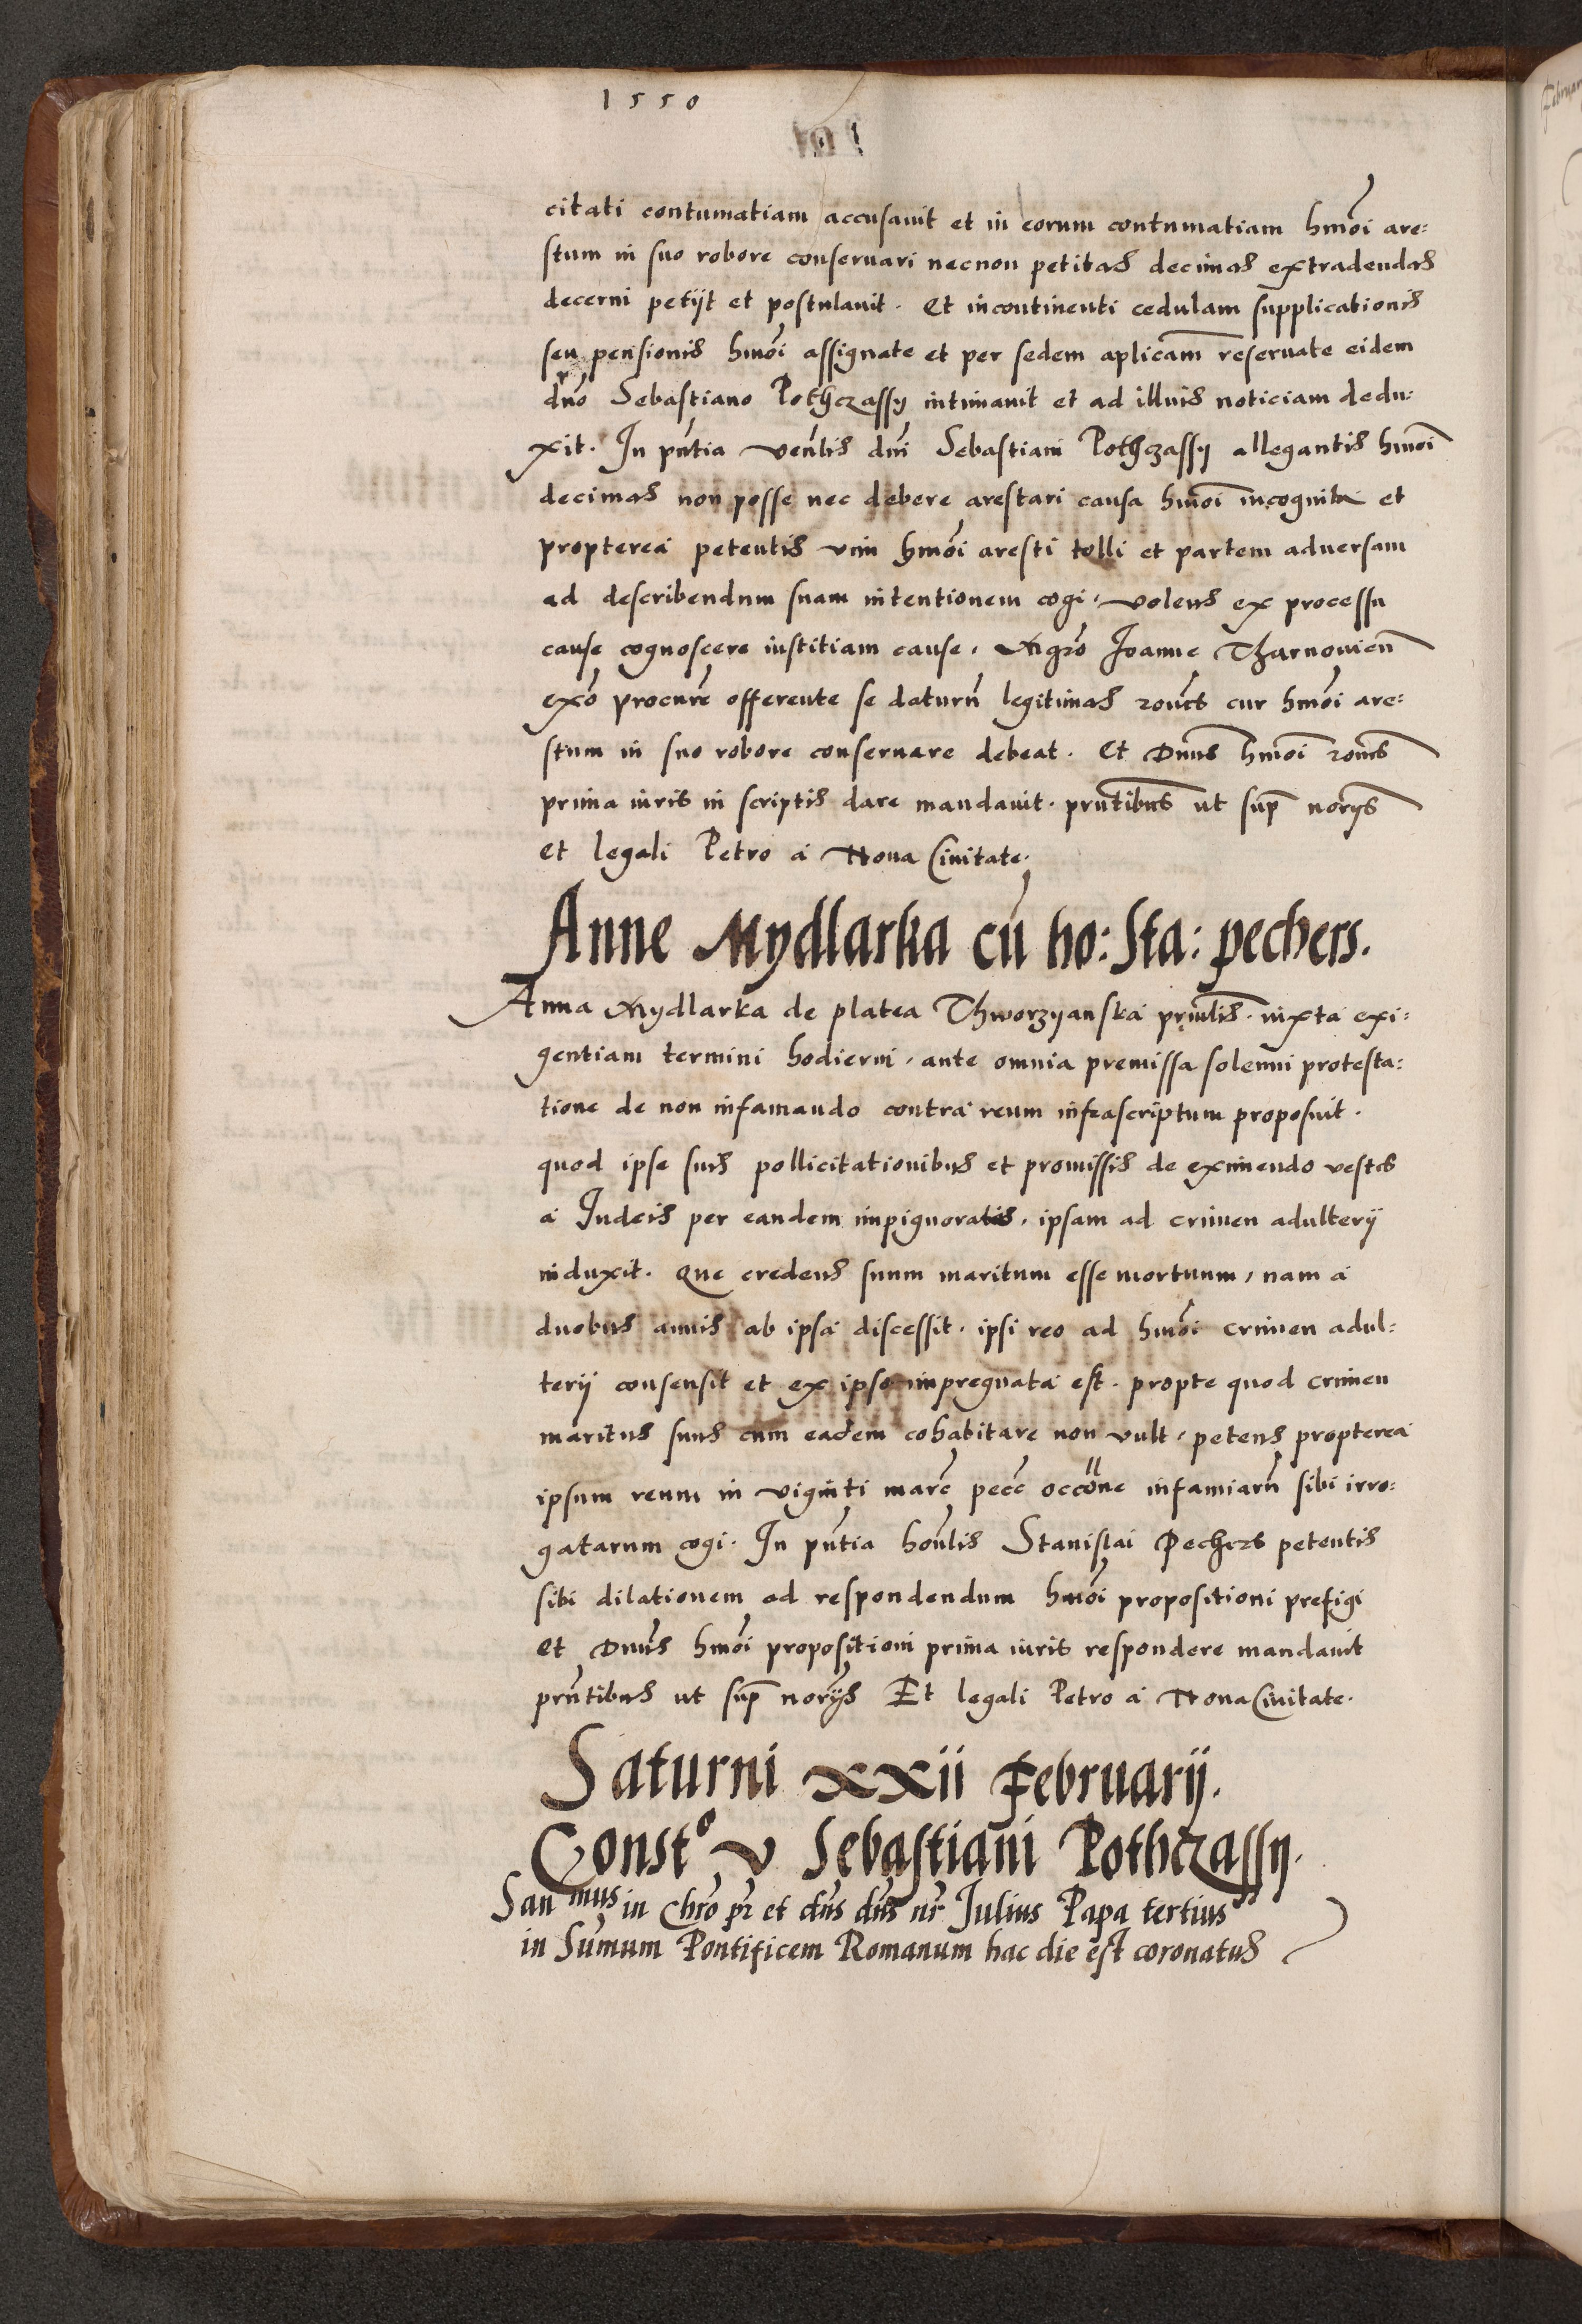 1550
citati contumatiam accusauit et in eorum contumatiam hmõi are:
stum in suo robore conseruari necnon petitas decimas extradendas
decerni petijt et postulauit. Et incontinenti cedulam supplicationis
seu pensionis hmõi assignate et per sedem aplicam̄ reseruate eidem
dño Sebastiano Pothczassy intimauit et ad illius noticiam dedu:
xit. In pñtia veñlis dñi Sebastiani Pothczassy allegantis hmõi
decimas non posse nec debere arestari causa hmõi incognita et
propterea petentis vim hmõi aresti tolli et partem aduersam
ad describendum suam intentionem cogi, volens ex processu
cause cognoscere iustitiam cause, Mgrõ Joanne Tharnouieñ
exõ procure offerente se daturũ legitimas roñes cur hmõi are:
stum in suo robore conseruare debeat. Et Dñus hmõi roñes
prima iuris in scriptis dare mandauit. prñtibus ut sup̄ norijs
et legali Petro a Noua Ciuitate.
Anne Mydlarka cũ ho: Sta: pechers.
Anna Mydlarka de platea Thworzyanska prñlis. iuxta exi:
gentiam termini hodierni, ante omnia premissa solenni protesta:
tione de non infamando contra reum infrascriptum proposuit.
quod ipse suis pollicitationibus et promissis de eximendo vestes
a Judeis per eandem impignoratis, ipsam ad crimen adulterij
induxit. Que credens suum maritum esse mortuum, nam a
duobus annis ab ipsa discessit. ipsi reo ad hmõi crimen adul:
terij consensit et ex ipso impregnata est. propte quod crimen
maritus suus cum eadem cohabitare non vult, petens propterea
ipsum reum in viginti marc̄ pecc̄ occõne infamiarũ sibi irro:
gatarum cogi. In pñtia hoñlis Stanislai Pechers petentis
sibi dilationem ad respondendum hmõi propositioni prefigi
et Dñus hmõi propositioni prima iuris respondere mandauit
prñtibus ut sup̄ norijs Et legali Petro a Noua Ciuitate.
Saturni xxii Februarij.
Constº v Sebastiani Pothczassy.
San mus in Chrõ pr̃ et dñs dñs nr̃ Julius Papa tertius
in Sũmum Pontificem Romanum hac die est coronatus